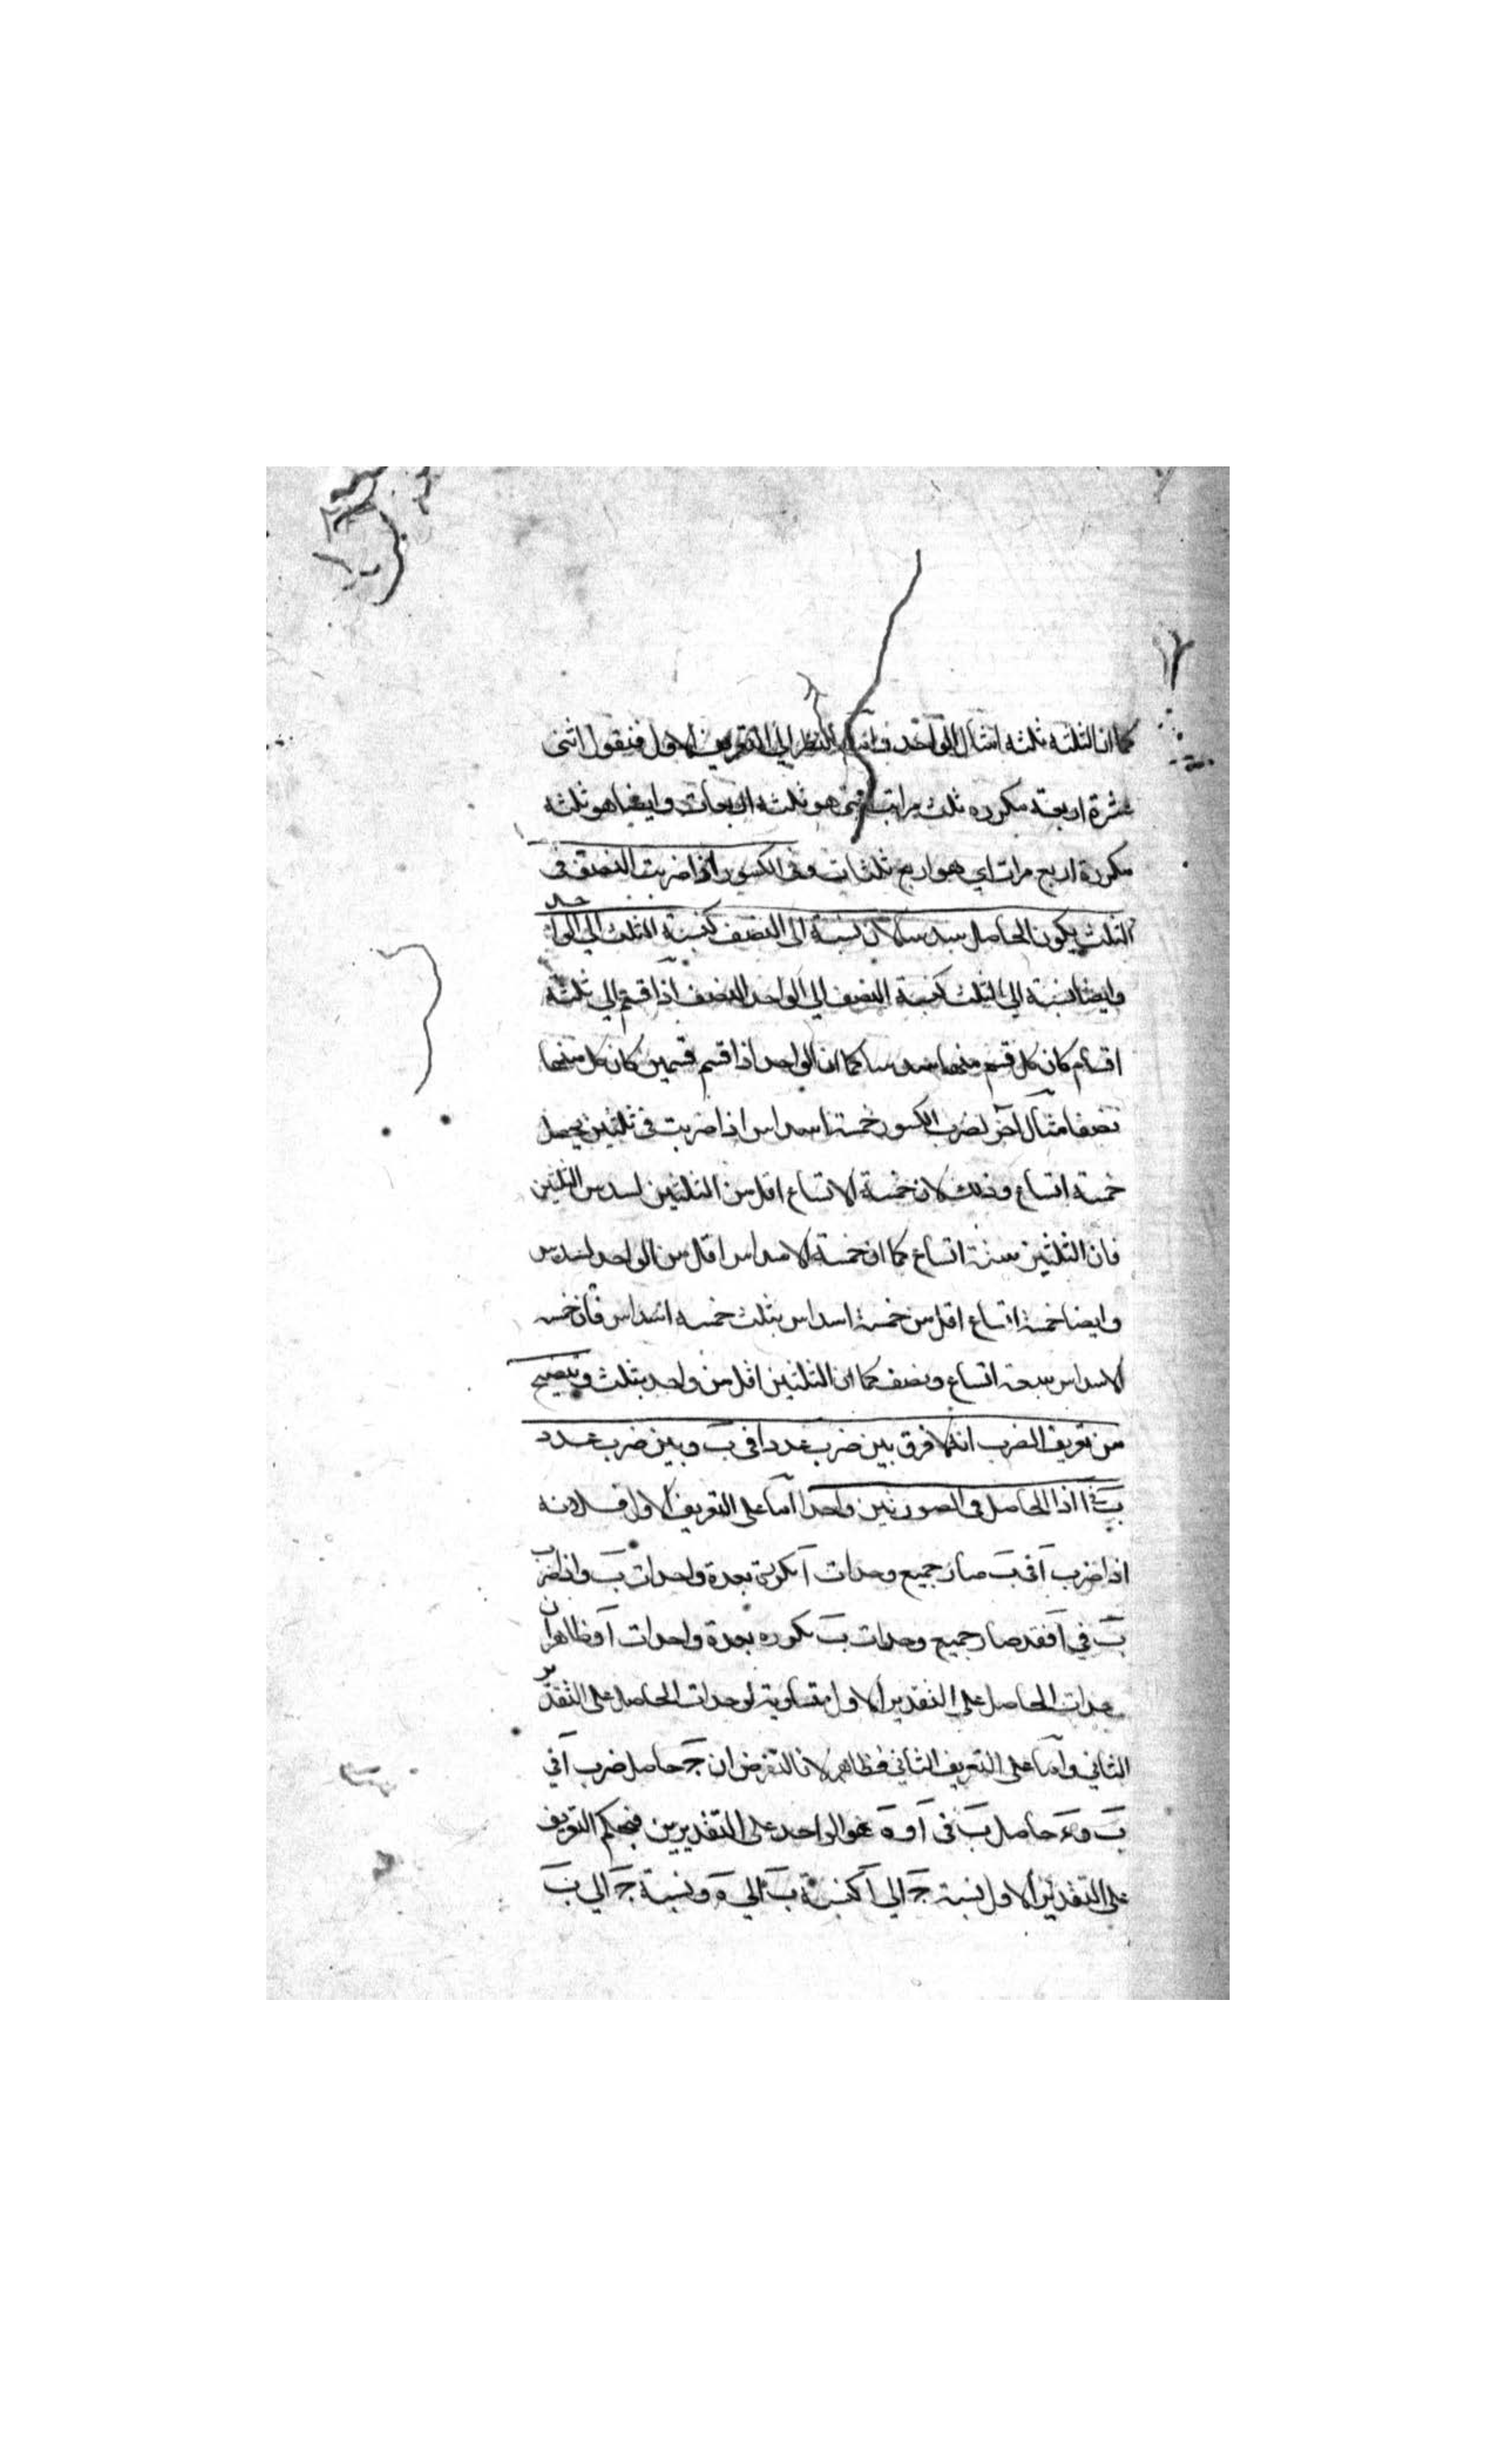 كما ان الثلثه ثلثه امثال الواحد واما بالنظر الي التعريف الاول فنقول اثنى
عشرة اربعة مكرره ثلث مراتب هو ثلثه اربعات وايضا هو ثلثه
مكررة اربع مرات اي هو اربع ثلثات وفى الكسور اذا ضربت النصف فى
الثلث يكون الحاصل سدسا لان نسبة الى النصف كنسبة الثلث الي الواحد
وايضا نسبة الي الثلث كنسبة النصف الي الواحد النصف اذا قسم الي ثلثة
اقسام كان كل قسم منها سدسا كما ان الواحد اذا قسم قسمين كان كل منهما
نصفا مثال آخر لضرب الكسور خمسة اسداس اذا ضربت فى ثلثين يحصل
خمسة اتساع وذلك لان خمسة الاتساع اقل من الثلثين لسدس الثلثين
فان الثلثين ستة اتساع كما ان خمسة الاسداس اقل من الواحد لسدس
وايضا خمسة اتساع اقل من خمسة اسداس بثلث خمسه اسداس فان خمسه
الاسداس سبعة اتساع ونصف كما ان الثلثين اقل من واحد بثلث ويتضح
من تعريف الضرب انه لا فرق بين ضرب عدد ا فى ب وبين ضرب عدد
ب فى ا اذ الحاصل فى الصورتين واحد اما على التعريف الاول فلانه
اذا ضرب آ فى ب صار جميع وحدات آ مكررة بعدة واحدات ب واذا ضرب
ب في آ فقد صار جميع وحدات ب مكرره بعدة واحدات آ وظاهر ان
وحدات الحاصل على التقدير الاول متساوية لوحدات الحاصل على التقدير
الثاني واما على التعريف الثاني فظاهر لانا لنفرض ان ج حاصل ضرب آ في
ب و ء حاصل ب فى آ و ه هو الواحد على التقديرين فبحكم التعريف
على التقدير الاول نسبة ج الي آ كنسبة ب الي ه ونسبة ج الي ب